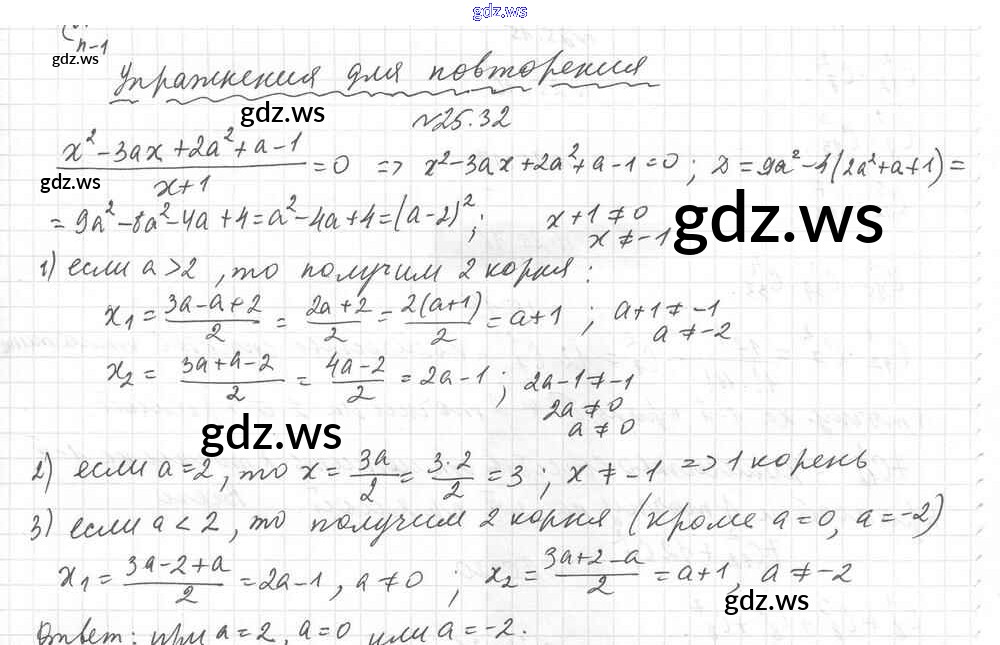 gdz.ws
n-1
gdz.ws
Упражнения для повторения
gdz.ws
№25.32
(x² - 3ax + 2a² + a - 1)/(x+1) = 0 => x² - 3ax + 2a² + a - 1 = 0; D = 9a² - 4(2a² + a + 1) =
gdz.ws
= 9a² - 8a² - 4a + 4 = a² - 4a + 4 = (a-2)²; x+1 ≠ 0
x ≠ -1
gdz.ws
1) если a > 2, то получим 2 корня:
x₁ = (3a-a+2)/2 = (2a+2)/2 = 2(a+1)/2 = a+1; a+1 ≠ -1
a ≠ -2
x₂ = (3a+a-2)/2 = (4a-2)/2 = 2a-1; 2a-1 ≠ -1
2a ≠ 0
a ≠ 0
gdz.ws
2) если a = 2, то x = 3a/2 = 3·2/2 = 3; x ≠ -1 => 1 корень
3) если a < 2, то получим 2 корня (кроме a = 0, a = -2)
x₁ = (3a-2+a)/2 = 2a-1, a ≠ 0; x₂ = (3a+2-a)/2 = a+1, a ≠ -2
gdz.ws
Ответ: при a = 2, a = 0 или a = -2.